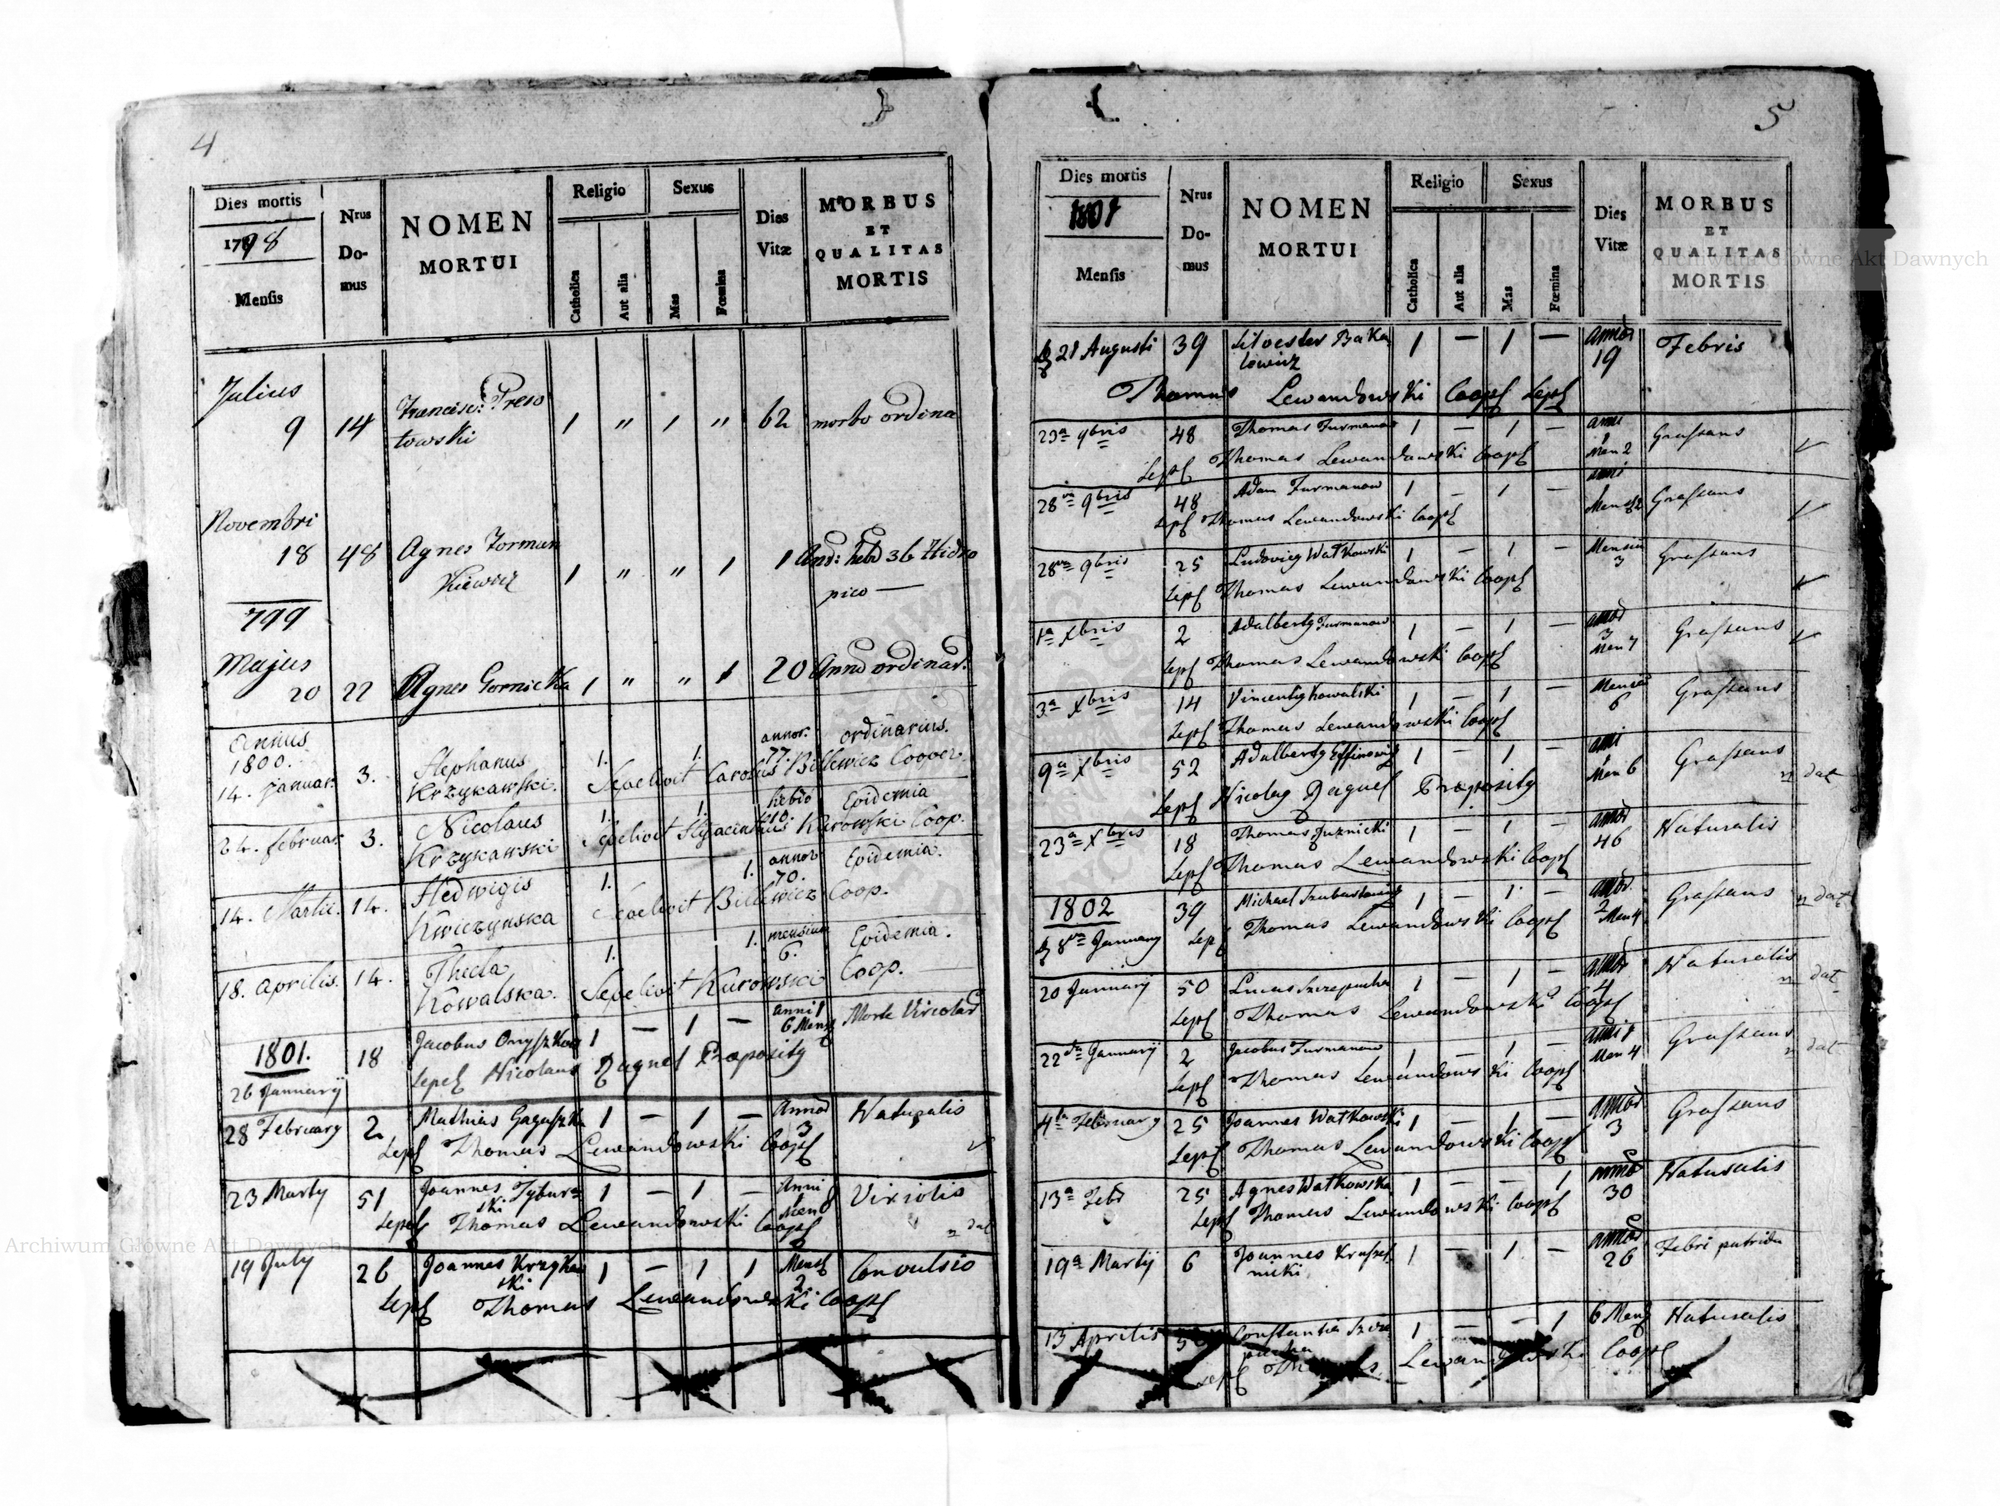 4
Dies mortis
1798
Mensis
Nrus
Do-
mus
NOMEN
MORTUI
Religio
Catholica
Aut alia
Sexus
Mas
Fœmina
Dies
Vitæ
MORBUS
ET
QUALITAS
MORTIS
Julius
9 14 Francisc: Preso 1 " 1 " 62 morbo ordina
towski
Novembri
18 48 Agnes Forman 1 " " 1 1 An: hebd 36 Hidro
kiewicz pico —
799
Majus
20 22 Agnes Gornicka 1 " " 1 20 Anno ordinar.
Annus annor. ordinarius.
1800. Stephanus 1. 1. 77.
14. Januar. 3. Krzykawski. Sepelivit Carolus Billewicz Cooper.
Nicolaus 1. 1. hebd Epidemia
24. Februar. 3. Krzykawski Sepelivit Hyacinthus Kurowski Coop.
Hedwigis 1. 1. annor 70. Epidemia.
14. Martii. 14. Kwiczynska Sepelivit Billewicz Coop.
Thecla 1. 1. mensium 6. Epidemia.
18. Aprilis. 14. Kowalska. Sepelivit Kurowski Coop.
1801. 18 Jacobus 1 — 1 — anni 1 6 Mens
26 Januarÿ Nicolaus Raguel Praeposity
28 February 2 Mathias 1 — 1 — Annor 3 Naturalis
Sepel Thomas Lewandowski Coop
23 Marty 51 Joannes Tybur 1 — 1 — Anni
ski
Sepel Thomas Lewandowski Coop
n dat
19 July 26 Joannes Krzykaw 1 — 1 1 Mens 2. Convulsio
ski
Sepel Thomas Lewandowski Coop
5
Dies mortis
1801
Mensis
Nrus
Do-
mus
NOMEN
MORTUI
Religio
Catholica
Aut alia
Sexus
Mas
Fœmina
Dies
Vitæ
MORBUS
ET
QUALITAS
MORTIS
21 Augusti 39 Silvester Baka 1 — 1 — annor 19 Febris
lowicz
Thomas Lewandowski Coop Sepel
23a 9bris 48 Thomas Furmanow 1 — 1 — Men 2 Grassans
Sepel Thomas Lewandowski Coop
28va 9bris 48 Adam Furmanow 1 — 1 — Grassans
Sepel Thomas Lewandowski Coop
28va 9bris 25 Ludovicg Watkowski 1 — 1 — Mensium 3 Grassans
Sepel Thomas Lewandowski Coop
1a Xbris 2 Adalbertg Furmanow 1 — 1 — annor 3 Men 7 Grassans
Sepel Thomas Lewandowski Coop
3a Xbris 14 Vincentig Kowalski 1 — 1 — Mensium 6 Grassans
Sepel Thomas Lewandowski Coop
9a Xbris 52 Adalbertg 1 — 1 — Men 6 Grassans
n dat
Sepel Nicolag Raguel Praeposity
23a Xbris 18 Thomas Juznicki 1 — 1 — annor 46 Naturalis
Sepel Thomas Lewandowski Coop
1802 39 Michael 1 — 1 — annor 2 Men 4 Grassans
n dat
8va January Sepel Thomas Lewandowski Coop
20 Januarÿ 50 Lucas 1 — 1 — annor 4 Naturalis
n dat
Sepel Thomas Lewandowski Coop
22da Januarÿ 2 Jacobus Furmanow 1 — 1 — Men 4 Grassans
n dat
Sepel Thomas Lewandowski Coop
4ta February 25 Joannes Watkowski 1 — 1 — annor 3 Grassans
Sepel Thomas Lewandowski Coop
13a Febr 25 Agnes Watkowska 1 — — 1 annor 30 Naturalis
Sepel Thomas Lewandowski Coop
19a Martÿ 6 Joannes 1 — 1 — annor 26 Febri putrida
nicki
13 Aprilis Constantia 1 — — 1 6 Mens Naturalis
Sepel Thomas Lewandowski Coop
Archiwum Główne Akt Dawnych
Archiwum Główne Akt Dawnych